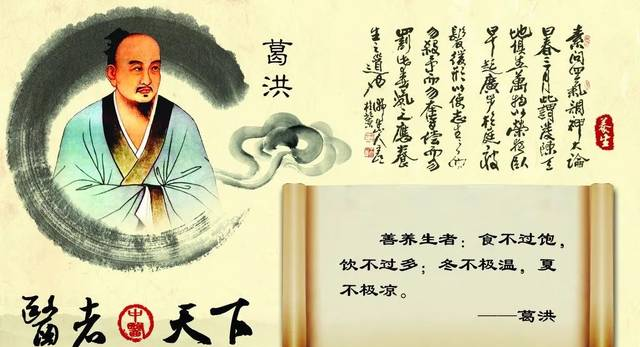 葛洪
素问四氣調神大論
曰春三月此謂發陳天
地俱生萬物以榮夜臥
早起廣步於庭被
髮緩形以使志生生而
勿殺予而勿奪賞而勿
罰此春氣之應養
生之道也
養生
善养生者：食不过饱，
饮不过多；冬不极温，夏
不极凉。
——葛洪
醫者中醫天下